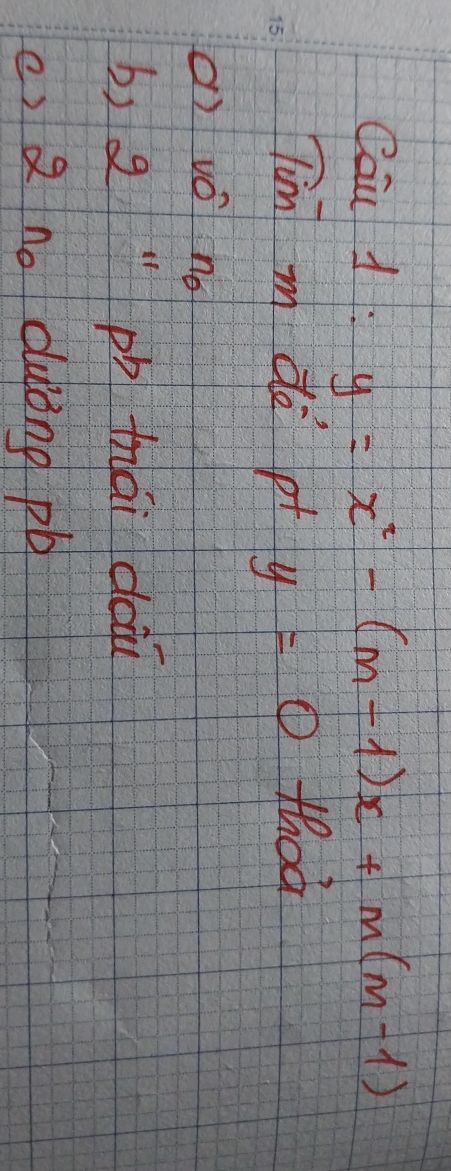 Câu 1 : y = x² - (m - 1)x + m(m - 1)
Tìm m để pt y = 0 thỏa
a) vô n₀
b) 2 " pb trái dấu
c) 2 n₀ dương pb
15